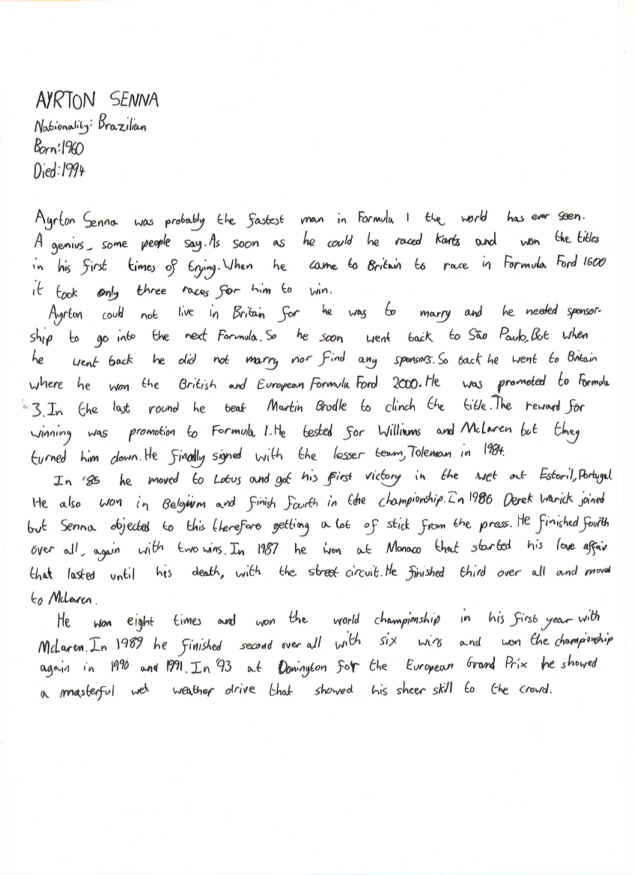 AYRTON SENNA
Nationality: Brazilian
Born:1960
Died:1994
Ayrton Senna was probably the fastest man in Formula 1 the world has ever seen.
A genius_ some people say. As soon as he could he raced Karts and won the titles
in his first times of trying. When he came to Britain to race in Formula Ford 1600
it took only three races for him to win.
Ayrton could not live in Britain for he was to marry and he needed sponsor-
ship to go into the next Formula. So he soon went back to São Paulo, But when
he went back he did not marry nor find any sponsors. So back he went to Britain
where he won the British and European Formula Ford 2000. He was promoted to Formula
3. In the last round he beat Martin Brudle to clinch the title. The reward for
winning was promotion to Formula 1. He tested for Williams and McLaren but they
turned him down. He finally signed with the lesser team, Toleman in 1984.
In '85 he moved to Lotus and got his first victory in the wet at Estoril, Portugal
He also won in Belgium and finish fourth in the championship. In 1986 Derek Warick joined
but Senna objected to this therefore getting a lot of stick from the press. He finished fourth
over all, again with two wins. In 1987 he won at Monaco that started his love affair
that lasted until his death, with the street circuit. He finished third over all and moved
to McLaren.
He won eight times and won the world championship in his first year with
McLaren. In 1989 he finished second over all with six wins and won the championship
again in 1990 and 1991. In '93 at Donington for the European Grand Prix he showed
a masterful wet weather drive that showed his sheer skill to the crowd.